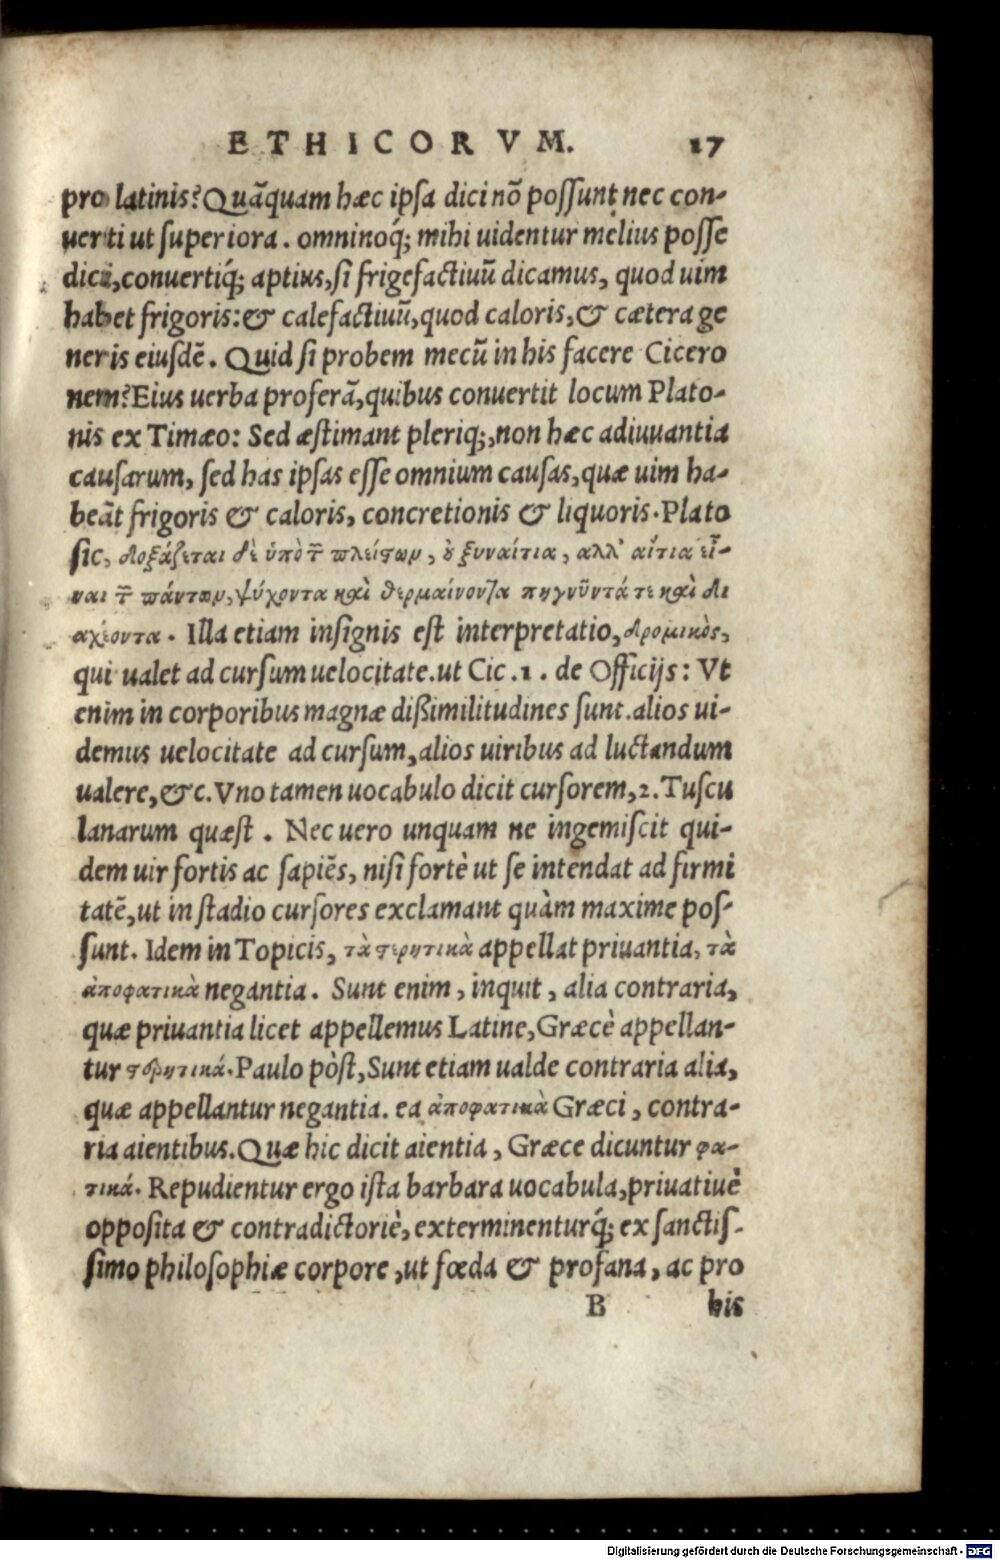 ETHICORVM. 17
pro latinis? Quãquam hæc ipsa dici nõ possunt nec con-
uerti ut superiora. omninoq́; mihi uidentur melius posse
dici, conuertiq́; aptius, si frigefactiuũ dicamus, quod uim
habet frigoris: & calefactiuũ, quod caloris, & cætera ge
neris eiusdẽ. Quid si probem mecũ in his facere Cicero
nem? Eius uerba proferã, quibus conuertit locum Plato-
nis ex Timæo: Sed æstimant pleriq;, non hæc adiuuantia
causarum, sed has ipsas esse omnium causas, quæ uim ha-
beãt frigoris & caloris, concretionis & liquoris. Plato
sic, δοξάζεται δὲ ὑπὸ τ̃ πλείστων, ὀ ξυναίτια, αλλ' αἴτια εἶ-
ναι τ̃ πάντων, ψύχοντα καὶ θερμαίνοντα πηγνῦντά τε καὶ δι
αχέοντα. Illa etiam insignis est interpretatio, δρομικὸς,
qui ualet ad cursum uelocitate. ut Cic. 1. de Officijs: Vt
enim in corporibus magnæ dißimilitudines sunt. alios ui-
demus uelocitate ad cursum, alios uiribus ad luctandum
ualere, &c. Vno tamen uocabulo dicit cursorem, 2. Tuscu
lanarum quæst. Nec uero unquam ne ingemiscit qui-
dem uir fortis ac sapiẽs, nisi fortè ut se intendat ad firmi
tatẽ, ut in stadio cursores exclamant quàm maxime pos-
sunt. Idem in Topicis, τὰ στερητικὰ appellat priuantia, τὰ
ἀποφατικὰ negantia. Sunt enim, inquit, alia contraria,
quæ priuantia licet appellemus Latine, Græcè appellan-
tur στερητικά. Paulo pòst, Sunt etiam ualde contraria alia,
quæ appellantur negantia. ea ἀποφατικὰ Græci, contra-
ria aientibus. Quæ hic dicit aientia, Græce dicuntur φα-
τικά. Repudientur ergo ista barbara uocabula, priuatiuè
opposita & contradictoriè, exterminenturq́; ex sanctis-
simo philosophiæ corpore, ut fœda & profana, ac pro
B his
Digitalisierung gefördert durch die Deutsche Forschungsgemeinschaft - DFG